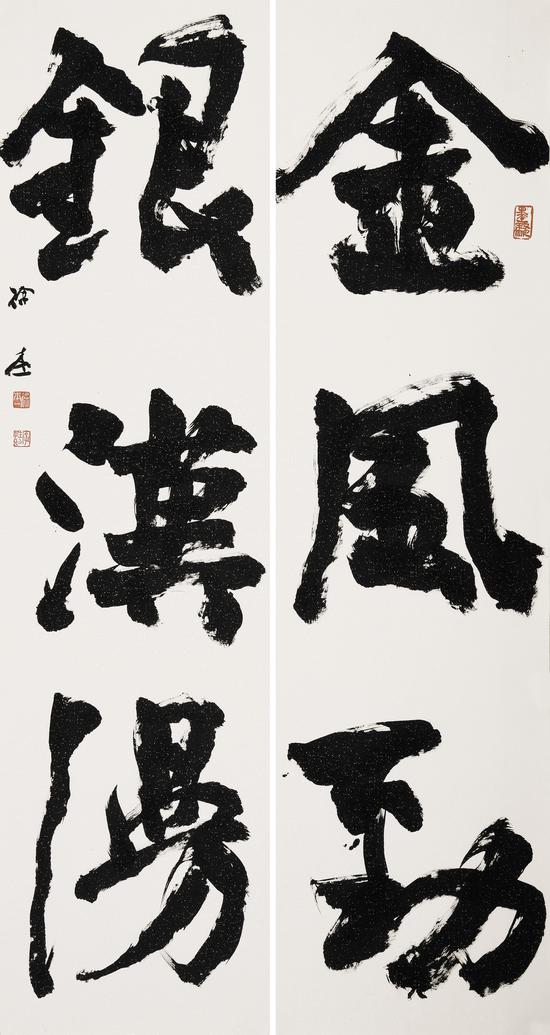 金風勁
銀漢湯
徐